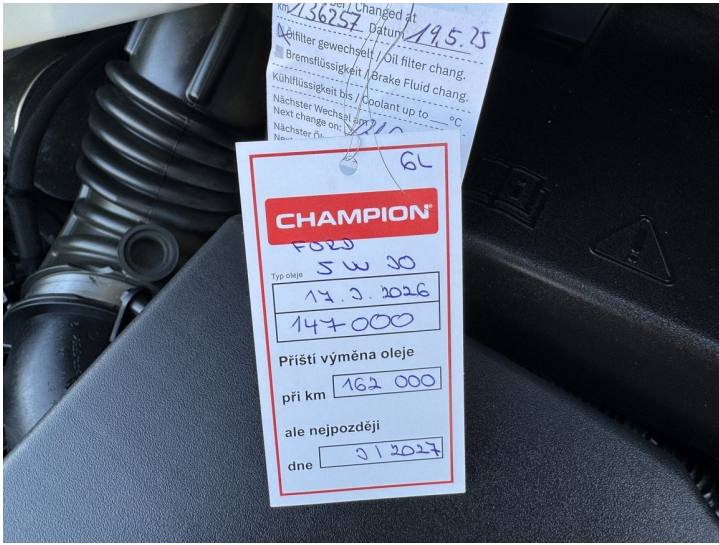 / Changed at
km 136257 Datum 19.5.25
Ölfilter gewechselt / Oil filter chang.
Bremsflüssigkeit / Brake Fluid chang.
Kühlflüssigkeit bis / Coolant up to ___ °C
Nächster Wechsel am
Next change on:
Nächster
6L
CHAMPION
FORD
Typ oleje 5W30
17.3.2026
147000
Příští výměna oleje
při km 162 000
ale nejpozději
dne 3/2027